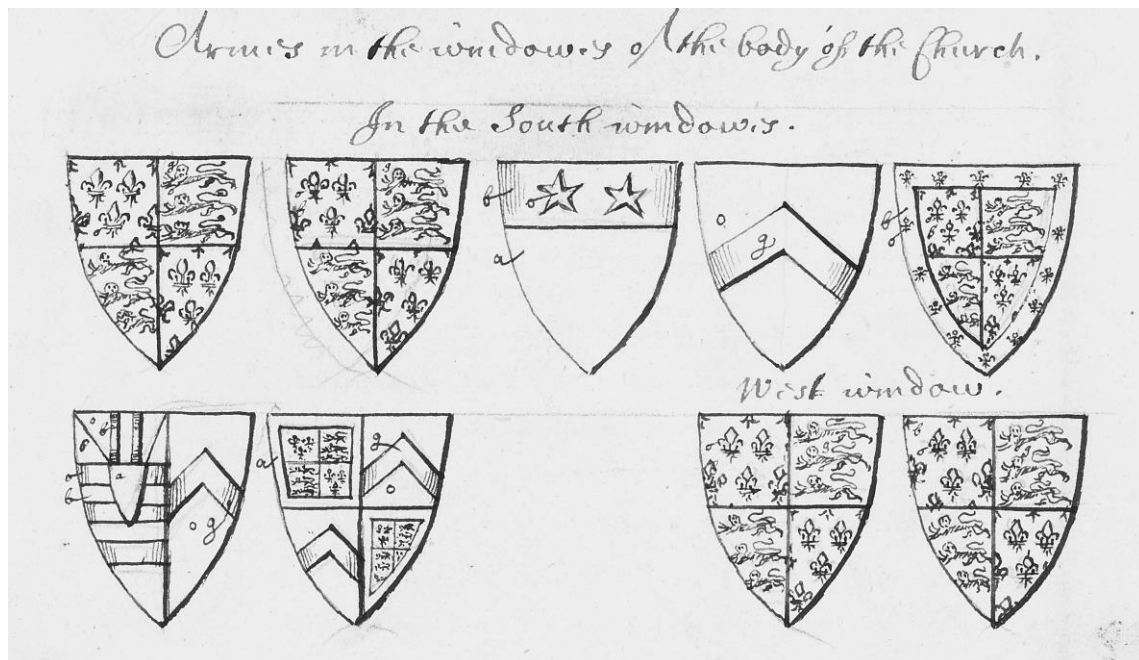 Armes in the windowes of the body of the Church.
In the South windowes.
b o
a
o g
b o
West window.
o b
b
o
b
a
o g
a
g
o